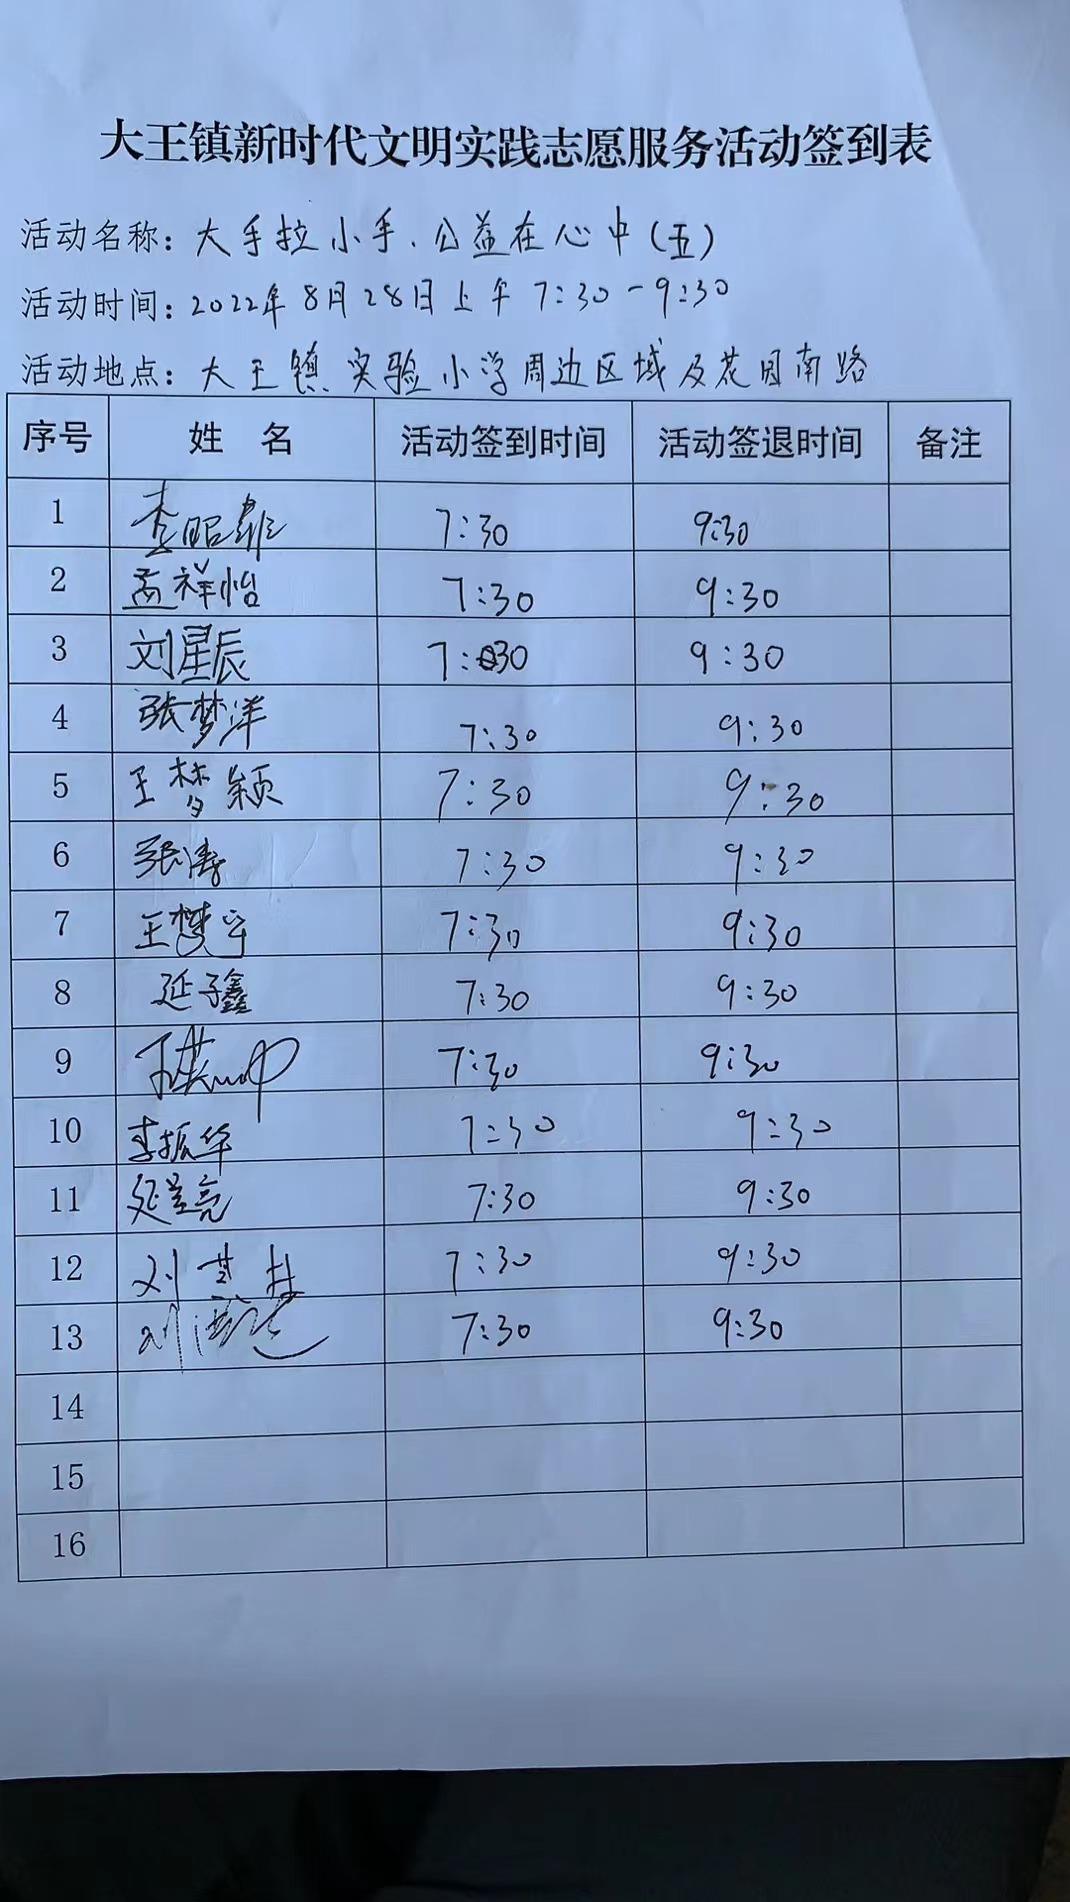 大王镇新时代文明实践志愿服务活动签到表
活动名称：大手拉小手、公益在心中(五)
活动时间：2022年8月28日上午7:30-9:30
活动地点：大王镇实验小学周边区域及花园南路
序号 姓 名 活动签到时间 活动签退时间 备注
1 7:30 9:30
2 孟祥怡 7:30 9:30
3 刘星辰 7:30 9:30
4 张梦洋 7:30 9:30
5 王梦颖 7:30 9:30
6 张涛 7:30 9:30
7 7:30 9:30
8 延子鑫 7:30 9:30
9 7:30 9:30
10 李振华 7:30 9:30
11 7:30 9:30
12 7:30 9:30
13 7:30 9:30
14
15
16